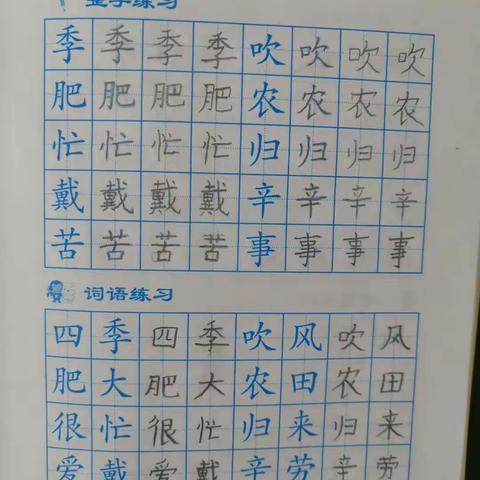 整字练习
季季季季吹吹吹吹
肥肥肥肥农农农农
忙忙忙忙归归归归
戴戴戴戴辛辛辛辛
苦苦苦苦事事事事
词语练习
四季四季吹风吹风
肥大肥大农田农田
很忙很忙归来归来
爱戴爱戴辛劳辛劳